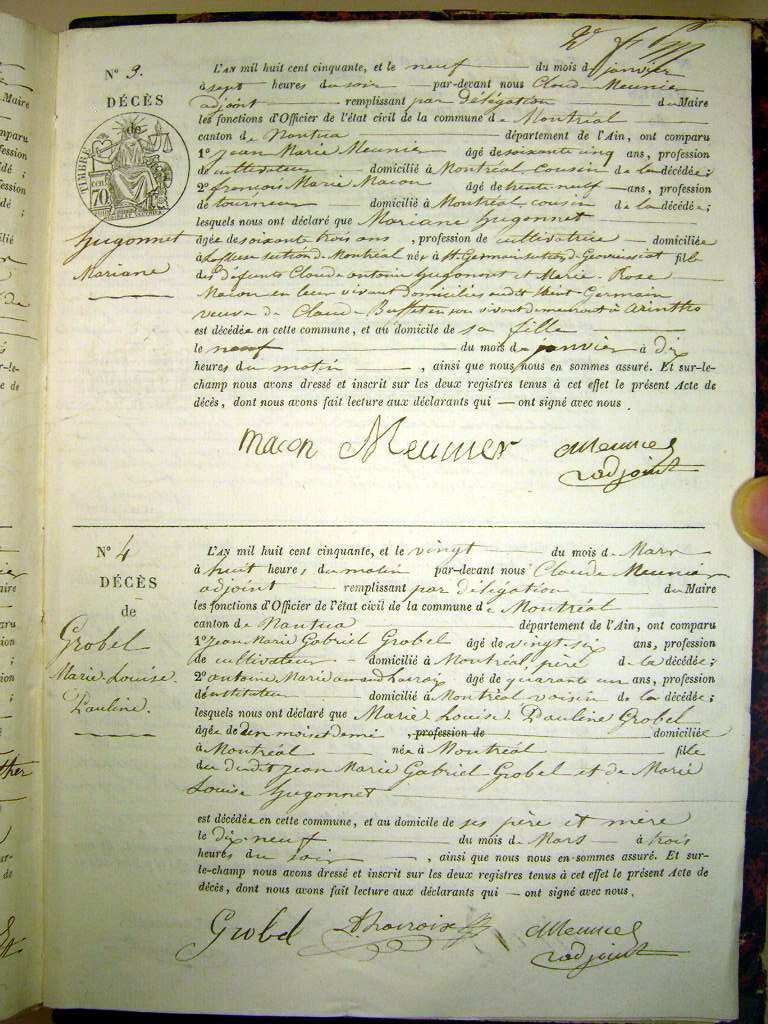 N° 3.
DÉCÈS
de
TIMBRE
70
Hugonnet
Mariane
L'AN mil huit cent cinquante, et le neuf du mois de janvier
à sept heures du soir par-devant nous Claude Meunier
adjoint remplissant par délégation du Maire
les fonctions d'Officier de l'état civil de la commune de Montréal
canton de Nantua département de l'Ain, ont comparu
1° Jean Marie Meunier âgé de soixante cinq ans, profession
de cultivateur domicilié à Montréal cousin de la décédée;
2° françois Marie Macon âgé de trente neuf ans, profession
de tourneur domicilié à Montréal cousin de la décédée;
lesquels nous ont déclaré que Mariane hugonnet
agée de soixante trois ans, profession de cultivatrice domiciliée
à section de Montréal née à St Germain section de fille
des défunts Claude antoine hugonnet et Marie Rose
Macon en leur vivant domiciliés audit Saint Germain
veuve de Claude Buffet en son vivant demeurant à arinthod
est décédée en cette commune, et au domicile de sa fille
le neuf du mois de janvier à dix
heures du matin, ainsi que nous nous en sommes assuré. Et sur-le-
champ nous avons dressé et inscrit sur les deux registres tenus à cet effet le présent Acte de
décès, dont nous avons fait lecture aux déclarants qui ont signé avec nous.
macon Meunier cMeunier
adjoint
N° 4
DÉCÈS
de
Grobel
Marie Louise
Pauline.
L'AN mil huit cent cinquante, et le vingt du mois de Mars
à huit heures du matin par-devant nous Claude Meunier
adjoint remplissant par délégation du Maire
les fonctions d'Officier de l'état civil de la commune de Montréal
canton de Nantua département de l'Ain, ont comparu
1° jean Marie Gabriel Grobel âgé de vingt six ans, profession
de cultivateur domicilié à Montréal, père de la décédée;
2° antoine Marie âgé de quarante un ans, profession
d'instituteur domicilié à Montréal voisin de la décédée;
lesquels nous ont déclaré que Marie Louise Pauline Grobel
agée de un mois et demi, profession de domiciliée
à Montréal née à Montréal fille
du dudit jean Marie Gabriel Grobel et de Marie
Louise hugonnet
est décédée en cette commune, et au domicile de ses père et mère
le dix neuf du mois de Mars à trois
heures du soir, ainsi que nous nous en sommes assuré. Et sur-
le-champ nous avons dressé et inscrit sur les deux registres tenus à cet effet le présent Acte de
décès, dont nous avons fait lecture aux déclarants qui ont signé avec nous.
Grobel cMeunier
adjoint